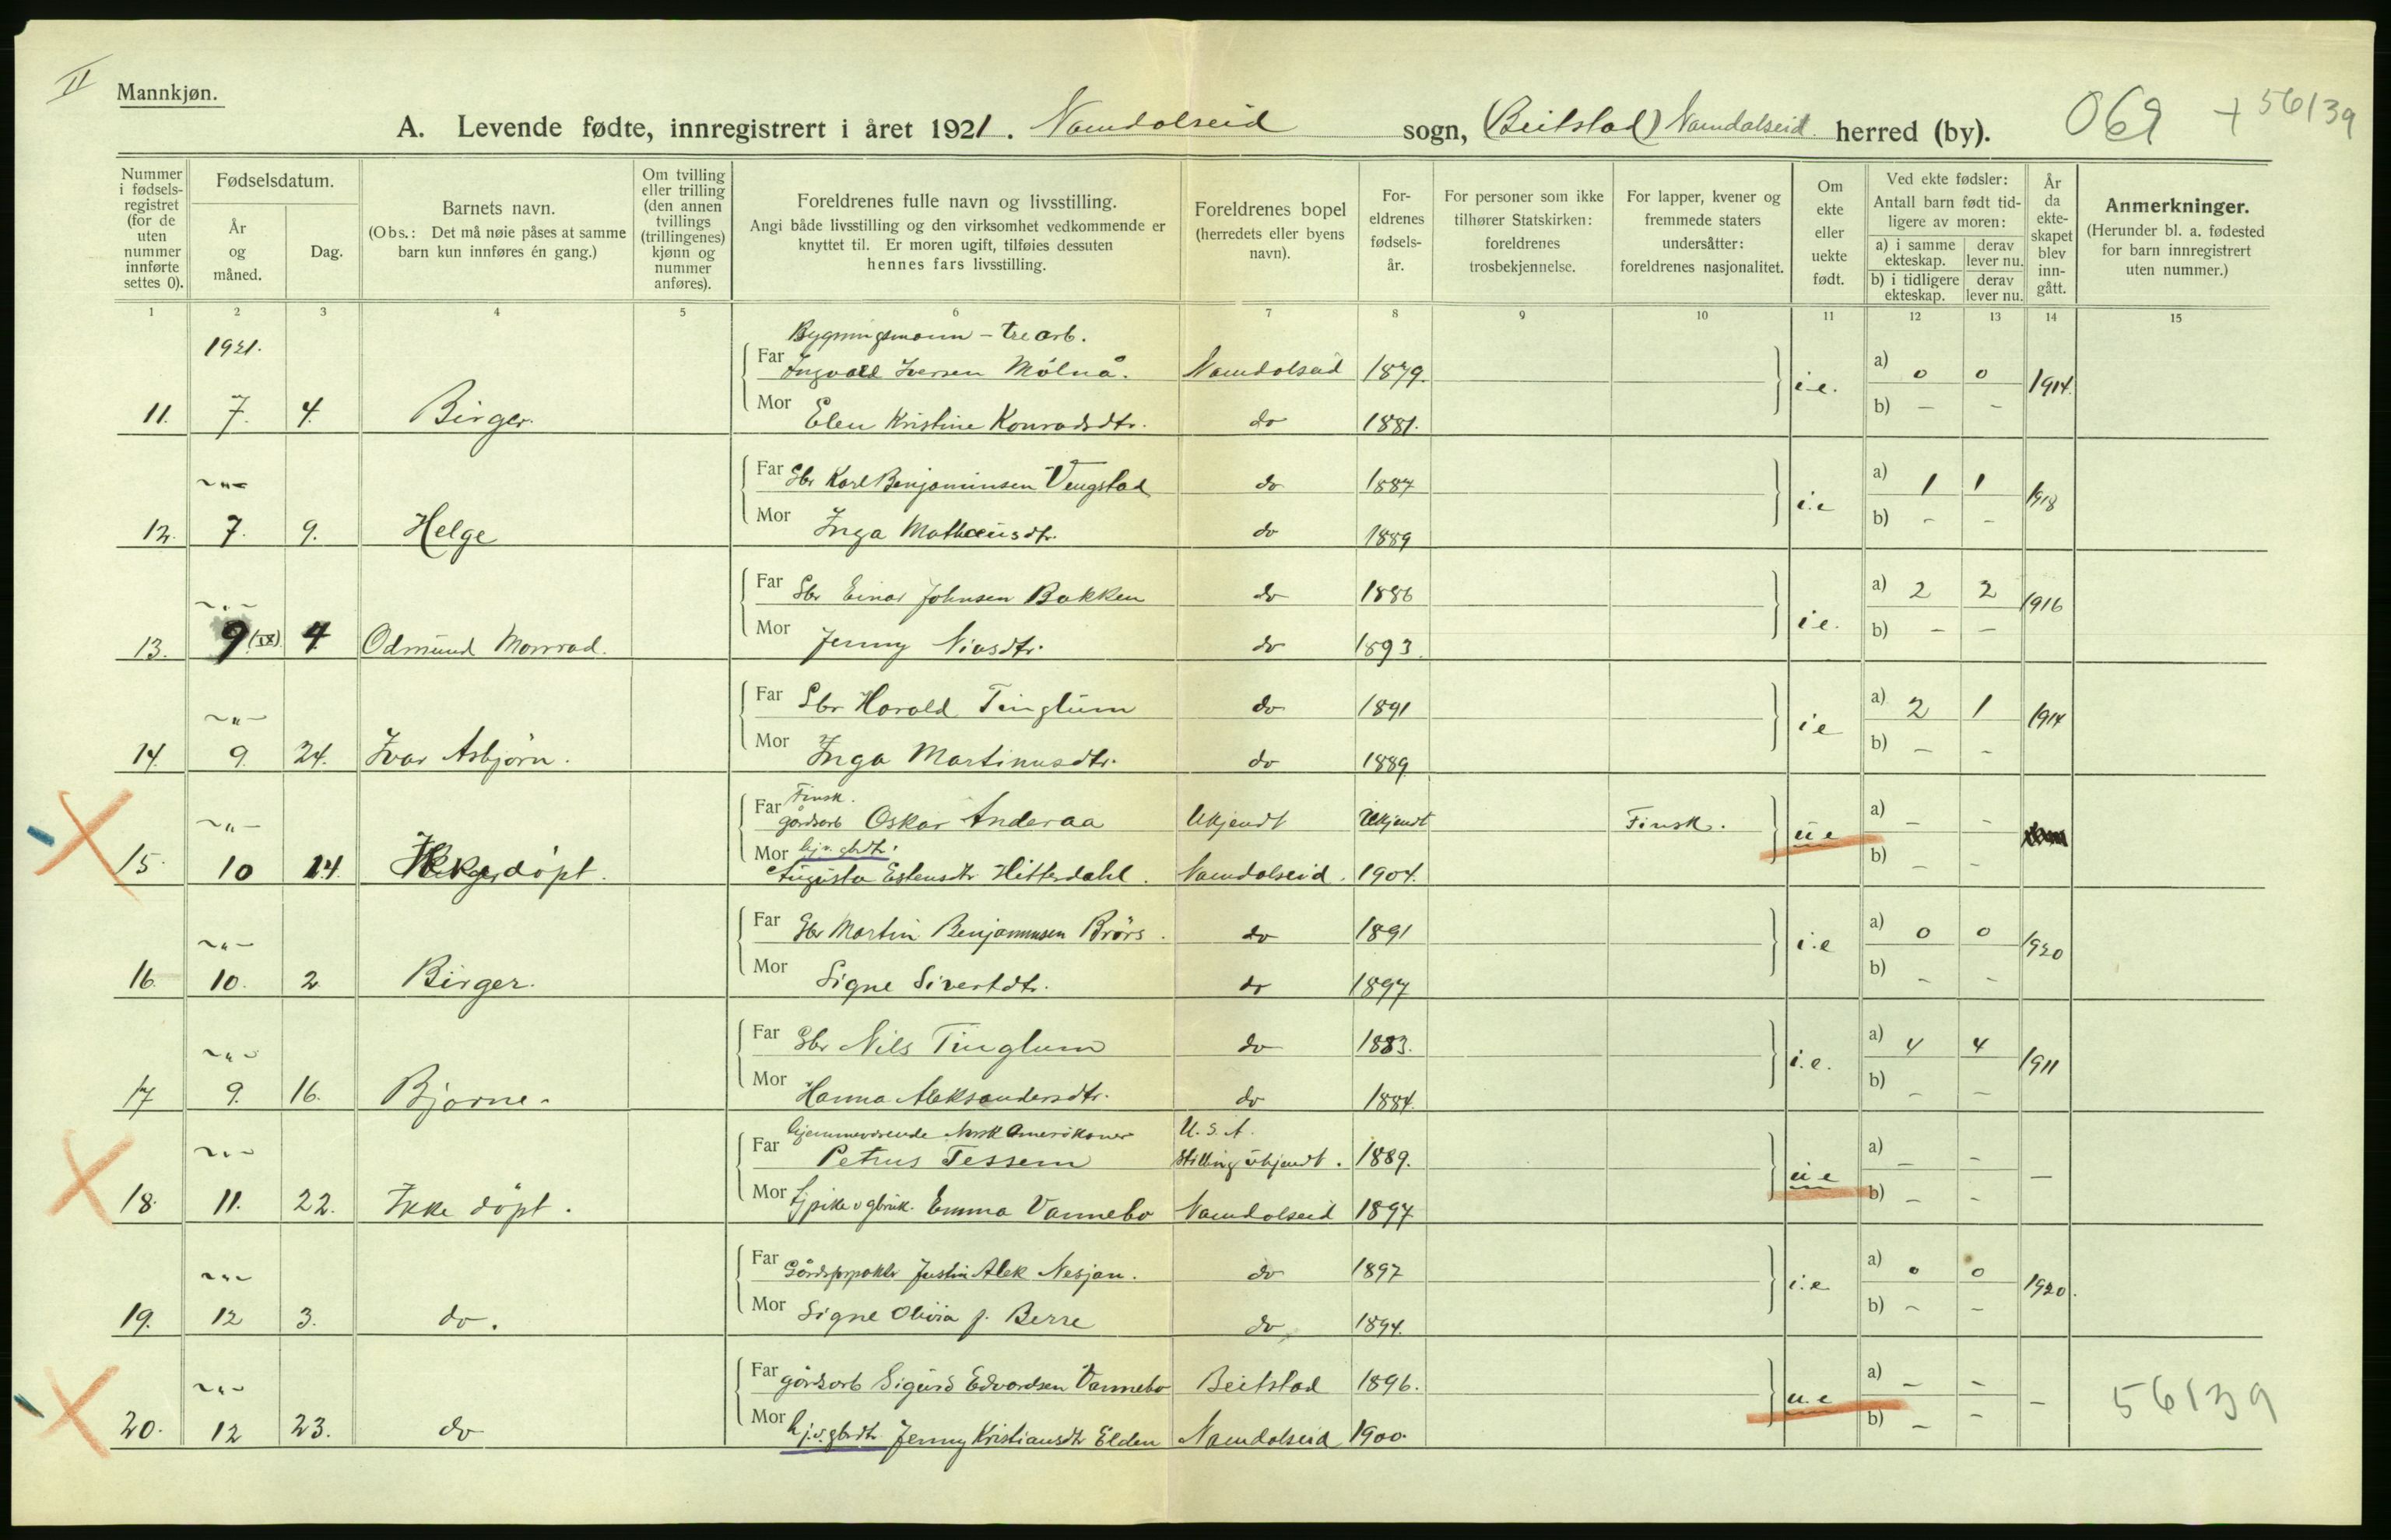 II
Mannkjøn.
A. Levende fødte, innregistrert i året 1921. Namdalseid sogn, (Beitstad) Namdalseid herred (by). 069 + 56139
Nummer i fødsels-registret (for de uten nummer innførte settes 0).
Fødselsdatum.
År og måned.
Dag.
Barnets navn.
(Obs.: Det må nøie påses at samme barn kun innføres én gang.)
Om tvilling eller trilling (den annen tvillings (trillingenes) kjønn og nummer anføres).
Foreldrenes fulle navn og livsstilling.
Angi både livsstilling og den virksomhet vedkommende er knyttet til. Er moren ugift, tilføies dessuten hennes fars livsstilling.
Foreldrenes bopel (herredets eller byens navn).
For-eldrenes fødsels-år.
For personer som ikke tilhører Statskirken: foreldrenes trosbekjennelse.
For lapper, kvener og fremmede staters undersåtter: foreldrenes nasjonalitet.
Om ekte eller uekte født.
Ved ekte fødsler: Antall barn født tid-ligere av moren:
a) i samme ekteskap. derav lever nu.
b) i tidligere ekteskap. derav lever nu.
År da ekte-skapet blev inn-gått.
Anmerkninger.
(Herunder bl. a. fødested for barn innregistrert uten nummer.)
1 2 3 4 5 6 7 8 9 10 11 12 13 14 15
1921. Bygningsmann - tre arb.
Far Ingvald Iversen Mølnå. Namdalseid 1879. i.e. a) 0 0 1914.
11. 7. 4. Birger. Mor Elen Kristine Konradsdtr. do 1881. b) – –
~"~ Far Gbr Karl Benjaminsen Vengstad do 1887 i.e a) 1 1 1918
12. 7. 9. Helge Mor Inga Matheusdtr. do 1889 b) – –
~"~ Far Gbr Einar Johnsen Bakken do 1886 i.e. a) 2 2 1916
13. 9 (IX) 4 Odmund Monrad. Mor Jenny Niasdtr. do 1893. b) – –
~"~ Far Gbr Harald Tinglum do 1891 i.e a) 2 1 1914
14. 9. 24. Ivar Asbjørn. Mor Inga Martinusdtr. do 1889 b) – –
~"~ Far Finsk. gårdsarb Oskar Anderaa Ukjendt Ukjendt Finsk. u e a) – –
15. 10 14. døpt. Mor hj.v. gbdtr. Augusta Estensdtr Hitterdahl. Namdalseid. 1904. b) – –
~"~ Far Gbr Martin Benjaminsen Brørs. do 1891 i.e a) 0 0 1920
16. 10. 2 Birger. Mor Signe Sivertdtr. do 1897 b) – –
~"~ Far Gbr Nils Tinglum do 1883. i.e. a) 4 4 1911
17 9. 16. Bjarne. Mor Hanna Aleksandersdtr. do 1884. b) – –
~"~ Far hjemmeværende Norsk Amerikaner Petrus Tessem U.S.A. Stilling ukjendt. 1889. u e a) – – –
18. 11. 22. Ikke døpt. Mor tjpike v gbruk. Emma Vannebo Namdalseid 1897 b) – –
~"~ Far Gårdsforpaktr Justin Alek Nesjan. do 1897 i.e a) 0 0 1920.
19. 12 3. do. Mor Signe Olivia f. Berre do 1894. b) – –
~"~ Far gårdsarb Sigurd Edvardsen Vannebo Beitstad 1896. u.e a) – – – 56139
20. 12 23. do Mor hj.v.gbdtr Jenny Kristiansdtr Elden Namdalseid 1900. b) – –